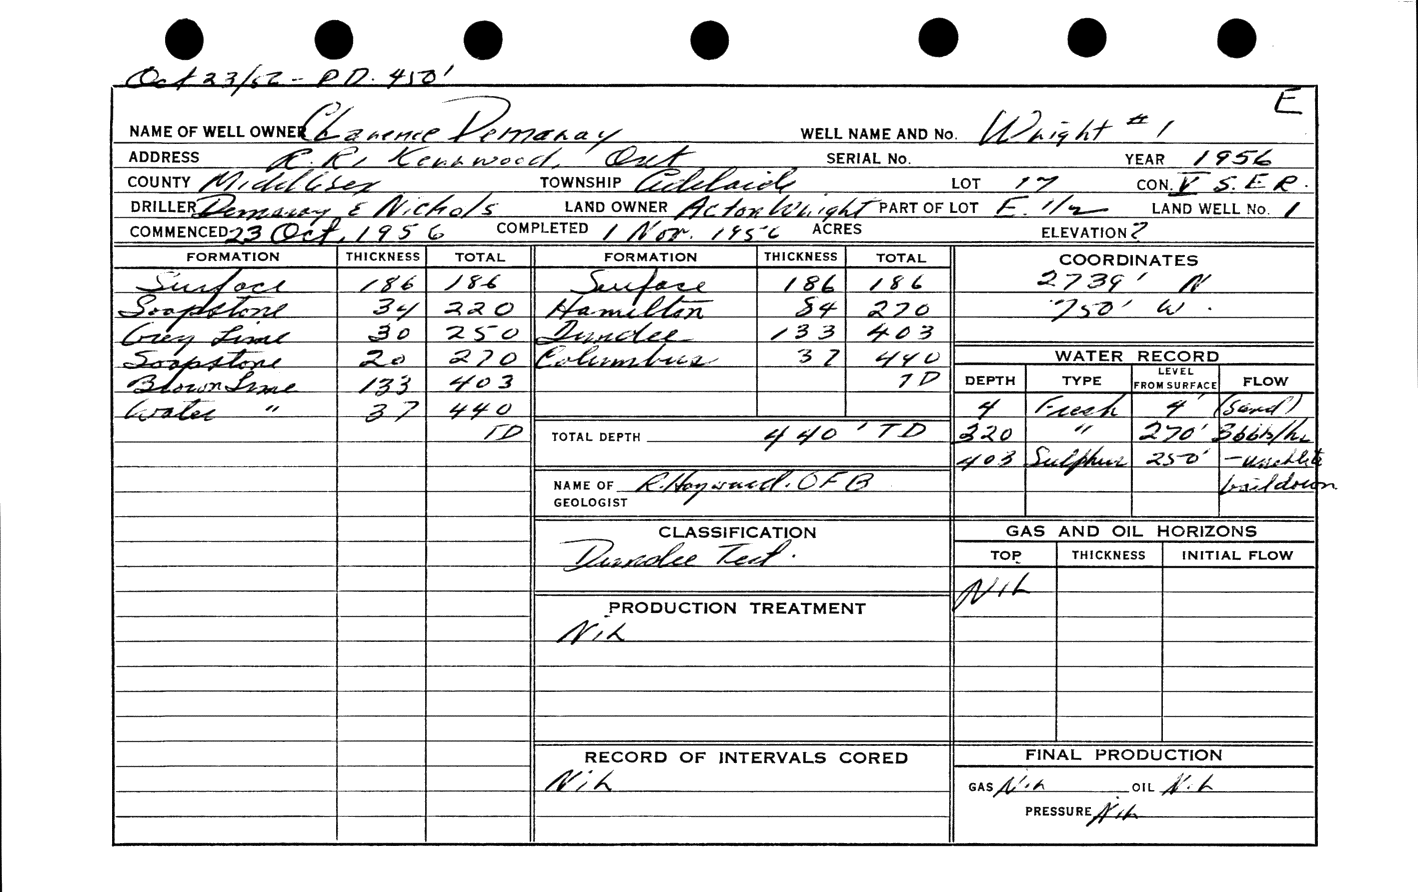 Oct 23/56 - P.D. 450'
E
NAME OF WELL OWNER Clarence Demaray WELL NAME AND No. Wright #1
ADDRESS R.R. Kerrwood, Ont SERIAL No. YEAR 1956
COUNTY Middlesex TOWNSHIP Adelaide LOT 17 CON. V S.E.R.
DRILLER Demaray & Nichols LAND OWNER Acton Wright PART OF LOT E. 1/2 LAND WELL No. 1
COMMENCED 23 Oct, 1956 COMPLETED 1 Nov. 1956 ACRES ELEVATION ?
FORMATION THICKNESS TOTAL FORMATION THICKNESS TOTAL COORDINATES
Surface 186 186 Surface 186 186 2739' N
Soapstone 34 220 Hamilton 84 270 750' W.
Grey Lime 30 250 Dundee 133 403
Soapstone 20 270 Columbus 37 440 WATER RECORD
TD DEPTH TYPE LEVEL FROM SURFACE FLOW
Brown Lime 133 403
Water " 37 440 4 Fresh 4' (Sand)
TD TOTAL DEPTH 440' TD 220 " 270' 3 bbls/hr
403 Sulphur 250' - unable to
NAME OF GEOLOGIST R. Hayward. OFB bail down
CLASSIFICATION GAS AND OIL HORIZONS
Dundee Test. TOP THICKNESS INITIAL FLOW
Nil
PRODUCTION TREATMENT
Nil
RECORD OF INTERVALS CORED FINAL PRODUCTION
Nil GAS Nil OIL Nil
PRESSURE Nil